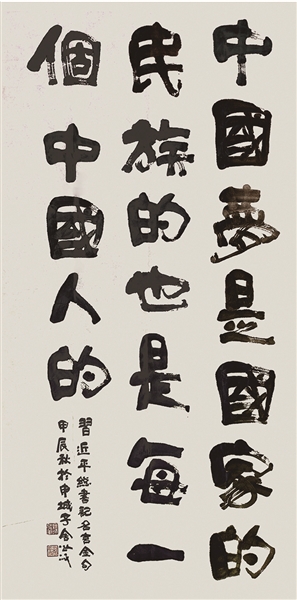 中國夢是國家的
民族的也是每一
個中國人的
習近平總書記名言金句
甲辰秋於申城